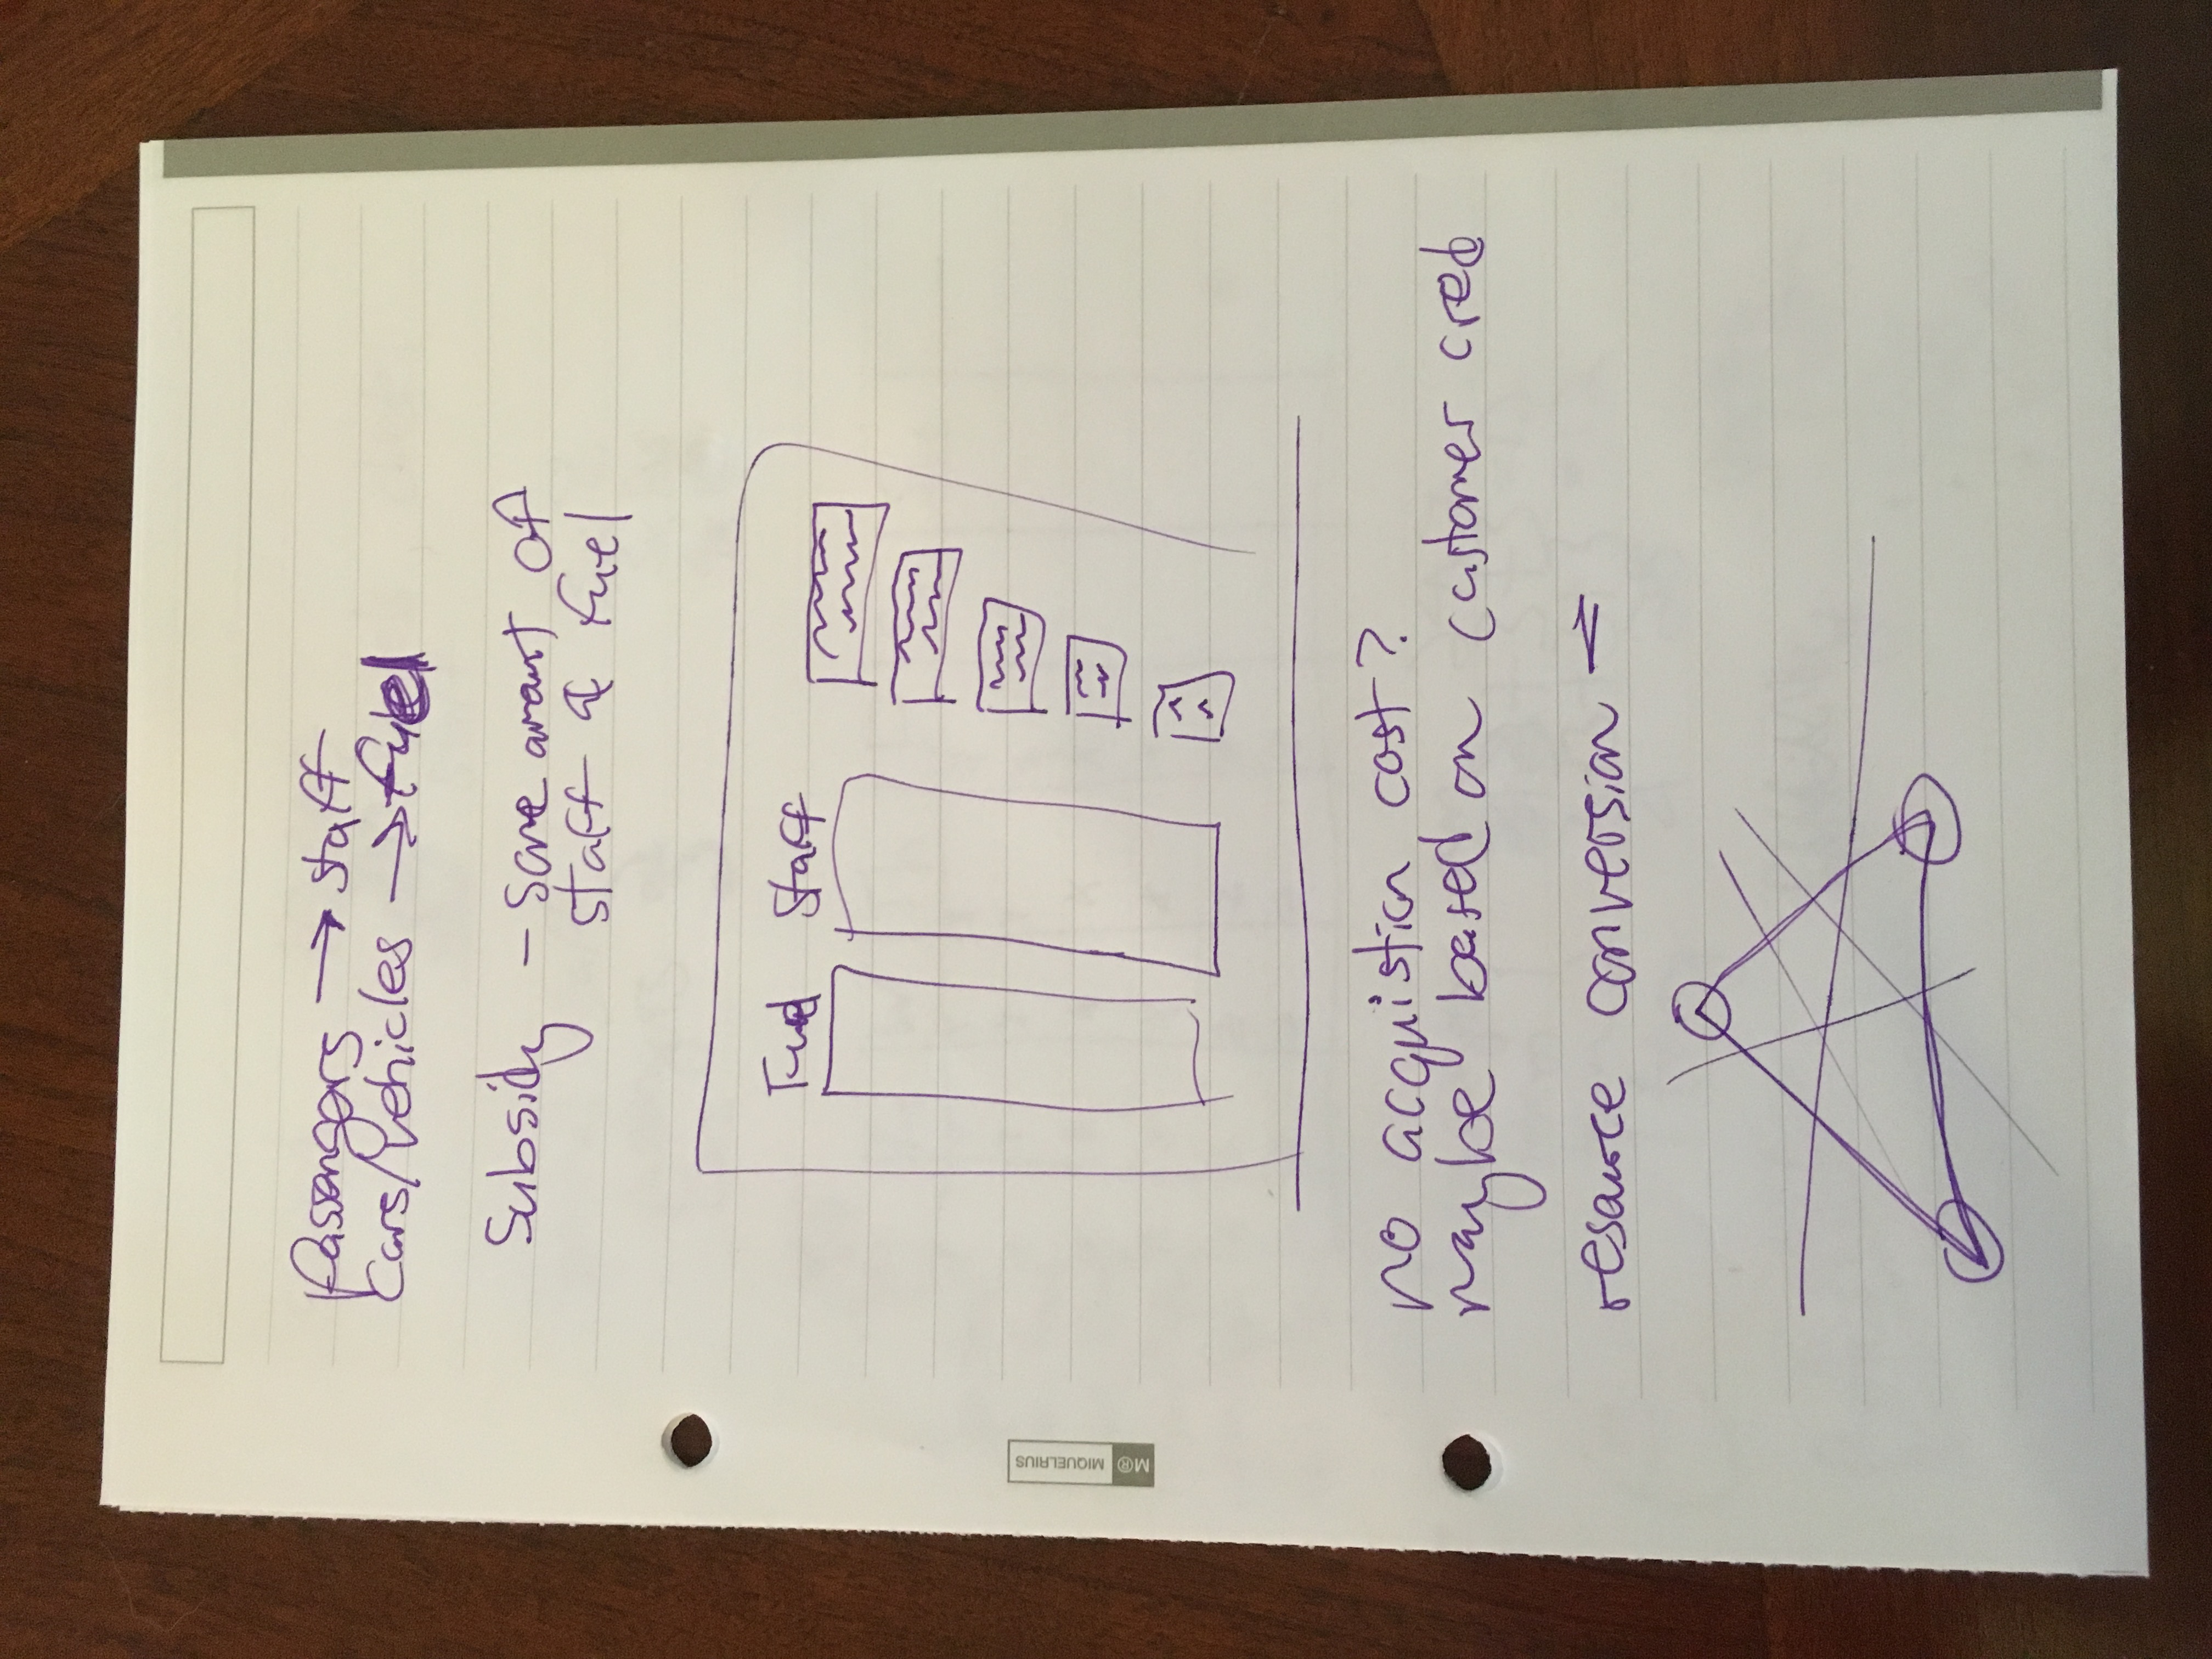 Passengers → staff
Cars/vehicles → fuel
Subsidy - some amount of
staff & fuel
Fuel Staff
no acquistion cost?
maybe based on customer cred
resource conversion
M® MIQUELRIUS